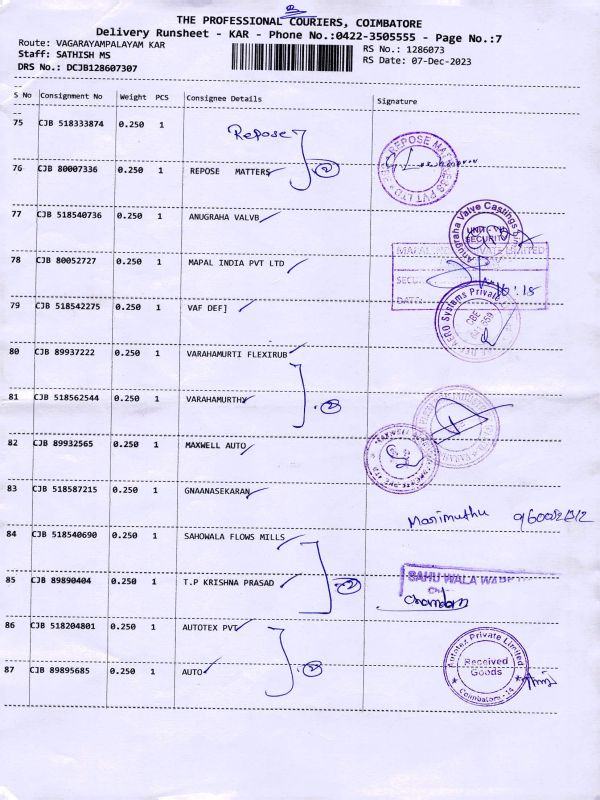 THE PROFESSIONAL COURIERS, COIMBATORE
Delivery Runsheet - KAR - Phone No.:0422-3505555 - Page No.:7
Route: VAGARAYAMPALAYAM KAR
Staff: SATHISH MS
DRS No.: DCJB128607307
RS No.: 1286073
RS Date: 07-Dec-2023
S No Consignment No Weight PCS Consignee Details Signature
75 CJB 518333874 0.250 1 Repose
76 CJB 80007336 0.250 1 REPOSE MATTERS 2
77 CJB 518540736 0.250 1 ANUGRAHA VALVB
Anugraha Valve Castings
UNIT - VII
SECURITY
78 CJB 80052727 0.250 1 MAPAL INDIA PVT LTD
DATE
79 CJB 518542275 0.250 1 VAF DEF]
Systems Private
80 CJB 89937222 0.250 1 VARAHAMURTI FLEXIRUB
81 CJB 518562544 0.250 1 VARAHAMURTHY 2
82 CJB 89932565 0.250 1 MAXWELL AUTO
83 CJB 518587215 0.250 1 GNAANASEKARAN
Marimuthu
84 CJB 518540690 0.250 1 SAHOWALA FLOWS MILLS
85 CJB 89890404 0.250 1 T.P KRISHNA PRASAD 2
86 CJB 518204801 0.250 1 AUTOTEX PVT
87 CJB 89895685 0.250 1 AUTO 2
Autotex Private Limited
Received
Goods
Coimbatore - 14